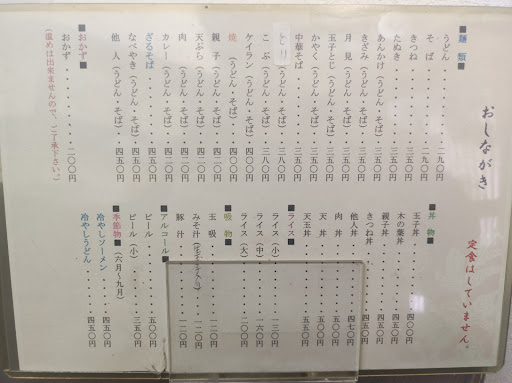 おしながき
定食はしていません。
■麺類■
うどん・・・・・・・・二九〇円
そば・・・・・・・・二九〇円
きつね・・・・・・・・三五〇円
たぬき・・・・・・・・三五〇円
あんかけ(うどん・そば)・三五〇円
きざみ(うどん・そば)・三五〇円
月見(うどん・そば)・三五〇円
玉子とじ(うどん・そば)・三五〇円
かやく(うどん・そば)・三五〇円
中華そば・・・・・・・三五〇円
(うどん・そば)・三八〇円
こぶ(うどん・そば)・三八〇円
ケイラン(うどん・そば)・四〇〇円
焼(うどん・そば)・四〇〇円
カレー(うどん・そば)・四二〇円
肉(うどん・そば)・四二〇円
天ぷら(うどん・そば)・四二〇円
親子(うどん・そば)・四二〇円
ざるそば・・・・・・・四五〇円
なべやき(うどん・そば)・四五〇円
他人(うどん・そば)・四五〇円
■おかず■
おかず・・・・・・・・二〇〇円
(温めは出来ませんので、ご了承下さい。)
■丼物■
玉子丼・・・・・・・四〇〇円
木の葉丼・・・・・・四五〇円
親子丼・・・・・・・四五〇円
きつね丼・・・・・・四五〇円
他人丼・・・・・・・四七〇円
肉丼・・・・・・・五〇〇円
天丼・・・・・・・五〇〇円
天玉丼・・・・・・・五五〇円
■ライス■
ライス(小)・・・・・一三〇円
ライス(中)・・・・・一六〇円
ライス(大)・・・・・二〇〇円
■吸物■
玉吸・・・・・・・一二〇円
みそ汁・・・一二〇円
豚汁・・・・・・・一二〇円
■アルコール■
ビール・・・・・・・四五〇円
ビール(小)・・・・・三五〇円
■季節物■(六月~九月)
冷やしソーメン・・・・四五〇円
冷やしうどん・・・・・四五〇円